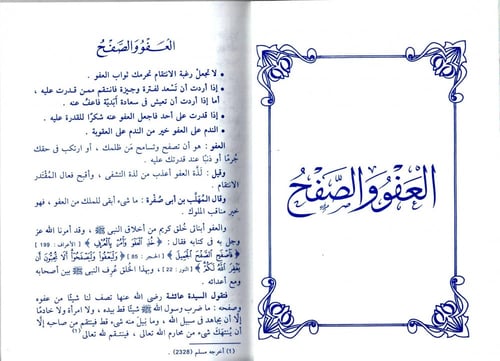 العَفوُ وَالصَّفحُ
العَفوُ وَالصَّفحُ
• لا تجعلْ رغبة الانتقام تحرمك ثواب العفو .
• إذا أردتَ أن تَسْعد لفترة وجيزة فانتقم ممن قدرت عليه ،
أما إذا أردت أن تعيش فى سعادة أبَدِيَّة فاعفُ عنه .
• إذا قدرت على أحد فاجعل العفو عنه شكرًا للقدرة عليه .
• الندم على العفو خير من الندم على العقوبة .
العفو : هو أن تصفح وتسامح مَن ظلمك ، أو ارتكب فى حقك
جُرمًا أو ذنبًا عند قدرتك عليه .
وقيل : لذَّة العفو أعذب من لذة التشفى ، وأقبح فعال المُقْتَدر
الانتقام .
وقال المُهَلَّب بن أبى صُفْرة : ما شىء أبقى للملك من العفو ، فهو
خير مناقب الملوك .
والعفو أبنائى خُلق كريم من أخلاق النبى ﷺ ، وقد أمرنا الله عز
وجل به فى كتابه فقال : ﴿ خُذِ الْعَفْوَ وَأْمُرْ بِالْعُرْفِ ﴾ [الأعراف : 199]
﴿ فَاصْفَحِ الصَّفْحَ الْجَمِيلَ ﴾ [الحجر : 85] ﴿ وَلْيَعْفُوا وَلْيَصْفَحُوا أَلَا تُحِبُّونَ أَن
يَغْفِرَ اللَّهُ لَكُمْ ﴾ [النور : 22] ، وبهذا الخُلق عُرف النبى ﷺ بين أصحابه
ومع أعدائه .
فتقول السيدة عائشة رضى الله عنها تصف لنا شيئًا من عفوه
وصفحه : ما ضرب رسول الله ﷺ شيئًا قط بيده ، ولا امرأة ولا خادمًا
إلَّا أن يجاهد فى سبيل الله ، وما نِيلَ منه شىء قط فينتقم من صاحبه إلَّا
أن يُنتَهكَ شىء من محارم الله تعالى ، فينتقم لله تعالى (1)
(1) أخرجه مسلم (2328) .